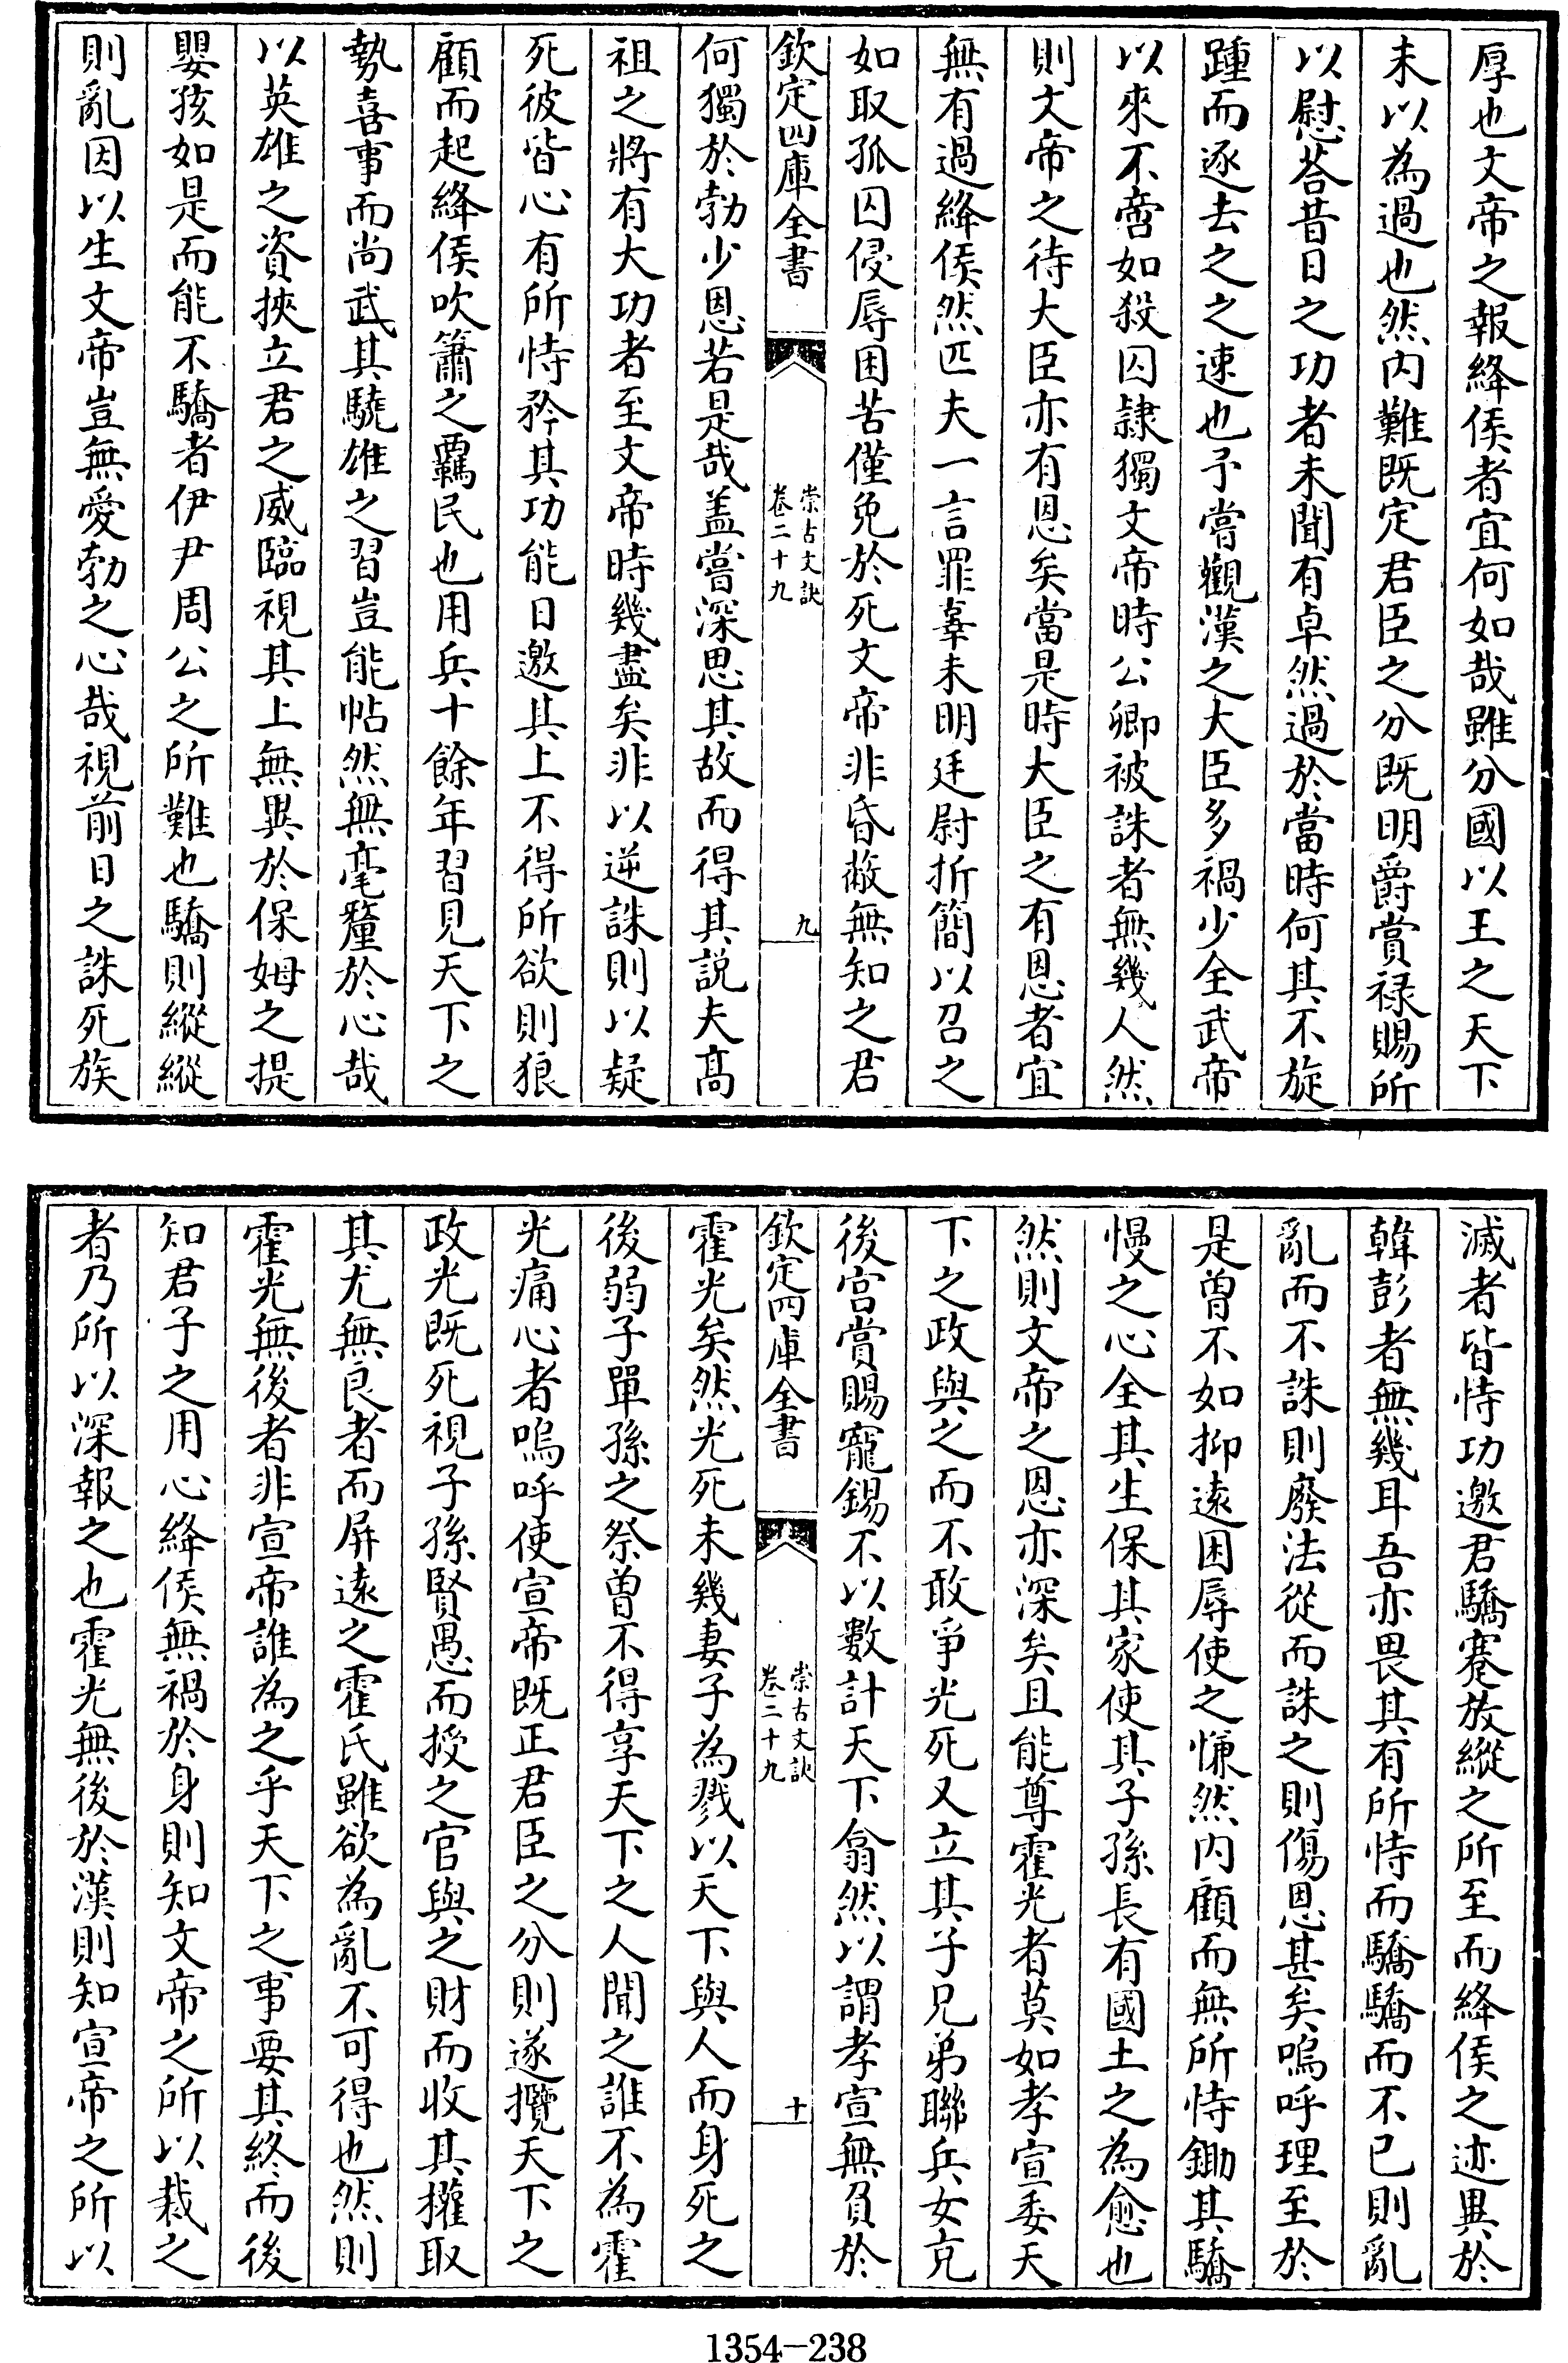 厚也文帝之報絳侯者宜何如哉雖分國以王之天下
未以為過也然內難既定君臣之分既明爵賞祿賜所
以慰荅昔日之功者未聞有卓然過於當時何其不旋
踵而逐去之之速也予嘗觀漢之大臣多禍少全武帝
以來不啻如殺囚隷獨文帝時公卿被誅者無幾人然
則文帝之待大臣亦有恩矣當是時大臣之有恩者宜
無有過絳侯然匹夫一言罪辜未明廷尉折簡以召之
如取孤囚侵辱困苦僅免於死文帝非昏蔽無知之君
欽定四庫全書
崇古文訣
卷二十九
九
何獨於勃少恩若是哉盖嘗深思其故而得其説夫高
祖之將有大功者至文帝時幾盡矣非以逆誅則以疑
死彼皆心有所恃矜其功能日邀其上不得所欲則狼
顧而起絳侯吹簫之羈民也用兵十餘年習見天下之
勢喜事而尚武其驍雄之習豈能帖然無毫釐於心哉
以英雄之資挾立君之威臨視其上無異於保姆之提
嬰孩如是而能不驕者伊尹周公之所難也驕則縱縱
則亂因以生文帝豈無愛勃之心哉視前日之誅死族
滅者皆恃功邀君驕蹇放縱之所至而絳侯之迹異於
韓彭者無幾耳吾亦畏其有所恃而驕驕而不已則亂
亂而不誅則廢法從而誅之則傷恩甚矣嗚呼理至於
是曾不如抑遠困辱使之慊然內顧而無所恃鋤其驕
慢之心全其生保其家使其子孫長有國土之為愈也
然則文帝之恩亦深矣且能尊霍光者莫如孝宣委天
下之政與之而不敢爭光死又立其子兄弟聯兵女充
後宮賞賜寵錫不以數計天下翕然以謂孝宣無負於
欽定四庫全書
崇古文訣
卷二十九
十
霍光矣然光死未幾妻子為戮以天下與人而身死之
後弱子單孫之祭曾不得享天下之人聞之誰不為霍
光痛心者嗚呼使宣帝既正君臣之分則遂攬天下之
政光既死視子孫賢愚而授之官與之財而收其權取
其尤無良者而屏遠之霍氏雖欲為亂不可得也然則
霍光無後者非宣帝誰為之乎天下之事要其終而後
知君子之用心絳侯無禍於身則知文帝之所以裁之
者乃所以深報之也霍光無後於漢則知宣帝之所以
1354-238